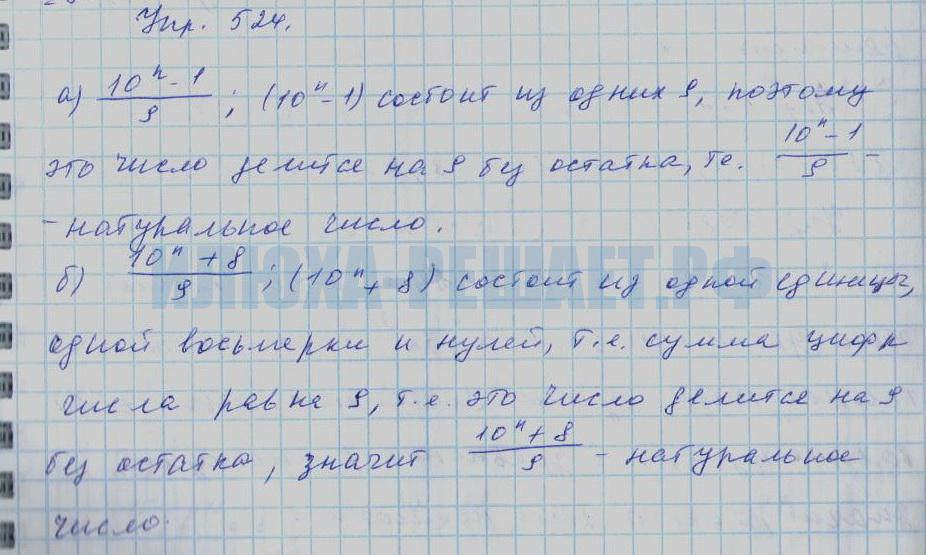 Упр. 524.
а) (10ⁿ - 1)/9 ; (10ⁿ - 1) состоит из одних 9, поэтому
это число делится на 9 без остатка, т.е. (10ⁿ - 1)/9 -
- натуральное число.
ИЛЮХА-РЕШАЕТ.РФ
б) (10ⁿ + 8)/9 ; (10ⁿ + 8) состоит из одной единицы,
одной восьмерки и нулей, т.е. сумма цифр
числа равна 9, т.е. это число делится на 9
без остатка, значит (10ⁿ + 8)/9 - натуральное
число.